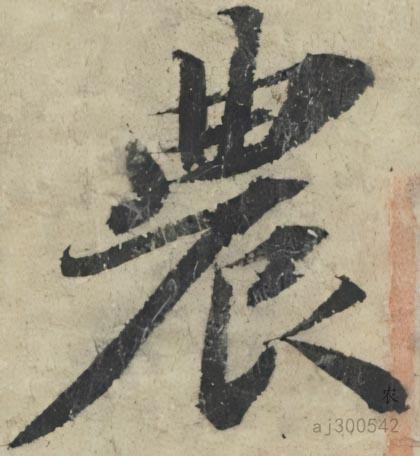 農
农
aj300542